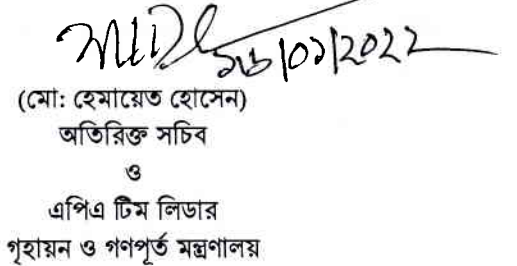 /০১/২০২২
(মো: হেমায়েত হোসেন)
অতিরিক্ত সচিব
ও
এপিএ টিম লিডার
গৃহায়ন ও গণপূর্ত মন্ত্রণালয়